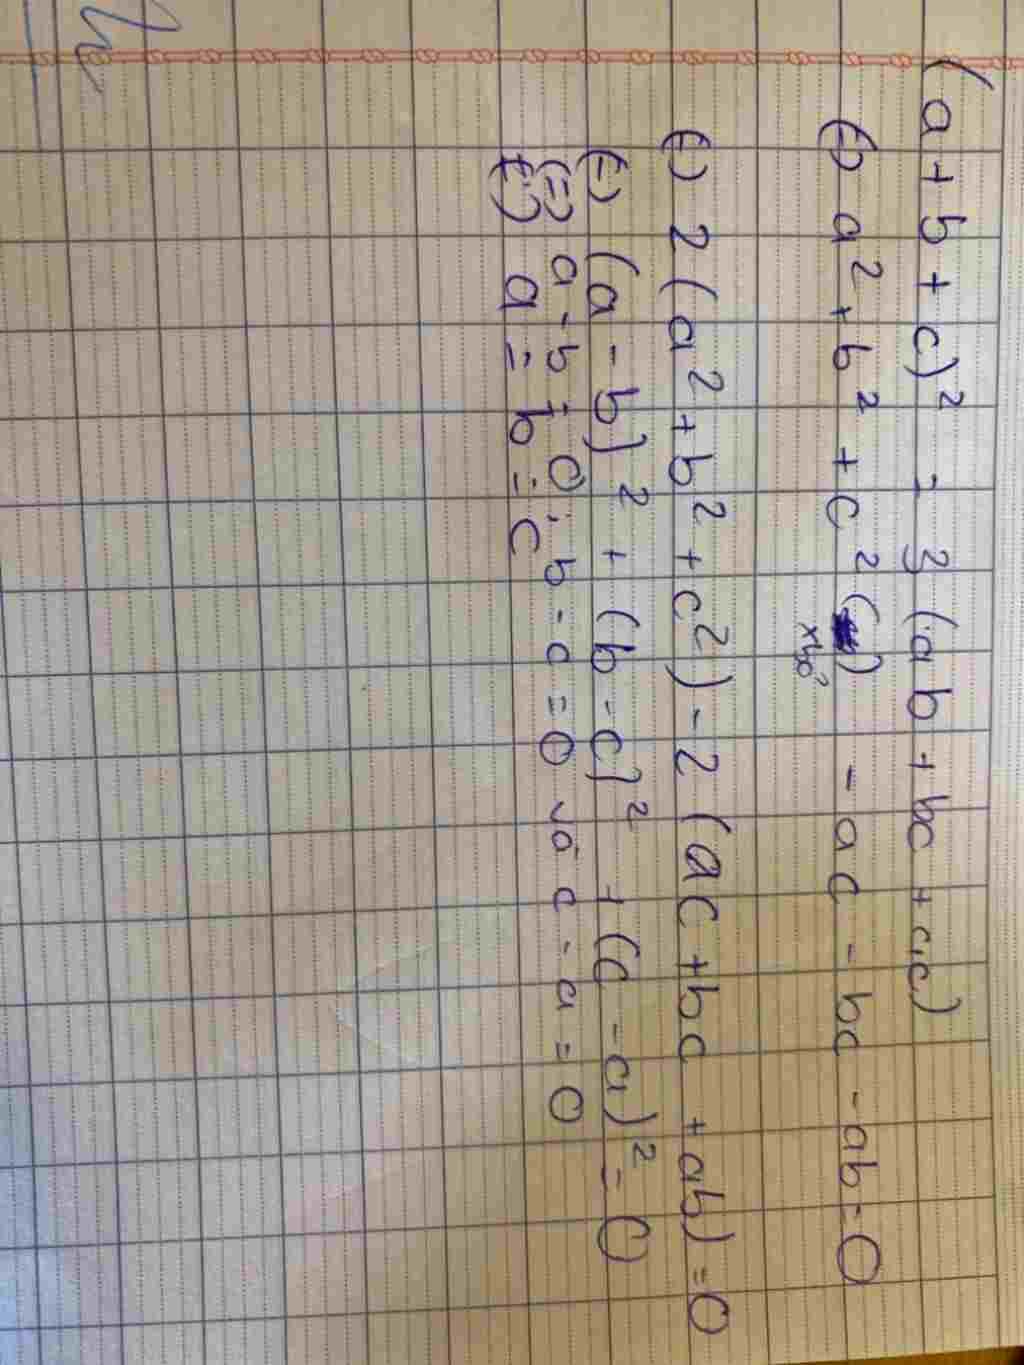 (a+b+c)² = 3(ab+bc+ca)
(=) a²+b²+c² - ac - bc - ab = 0
(=) 2(a²+b²+c²) - 2(ac+bc+ab) = 0
(=) (a-b)² + (b-c)² + (c-a)² = 0
(=) a-b=0; b-c=0 và c-a=0
(=) a=b=c